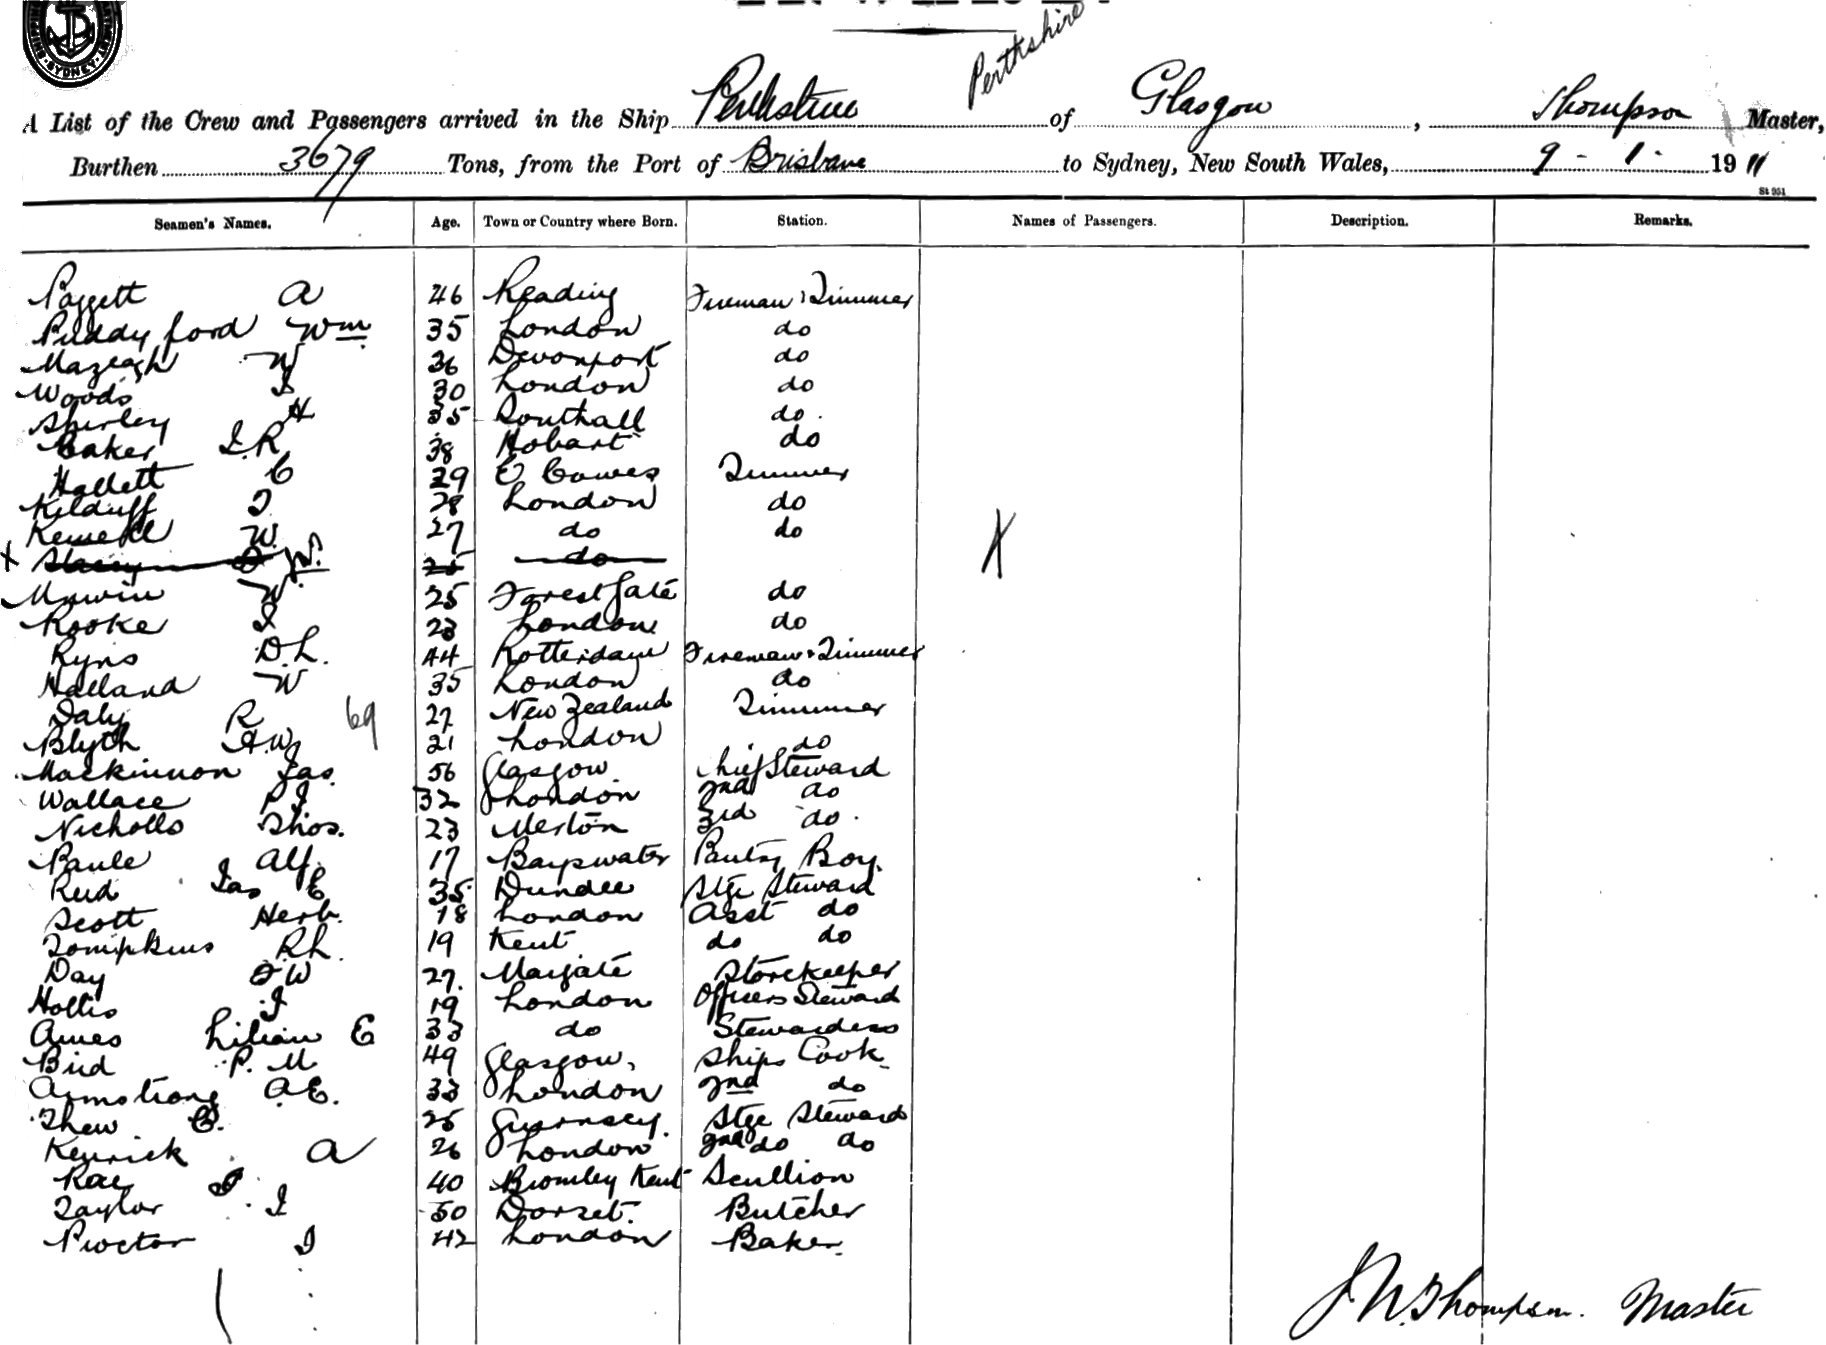 SYDNEY
Perthshire
A List of the Crew and Passengers arrived in the Ship Perthshire of Glasgow, Thompson Master,
Burthen 3679 Tons, from the Port of Brisbane to Sydney, New South Wales, 9 - 1 - 1911
St 951
Seamen's Names. Age. Town or Country where Born. Station. Names of Passengers. Description. Remarks.
A 46 Reading Fireman & Trimmer
Puddyford Wm 35 London do
W 36 Devonport do
Woods J 30 London do
Shirley H 35 Southall do.
Baker J.R 38 Hobart do
Hallett C 29 E Cowes Trimmer
Kilduff J 28 London do
W. 27 do do
x Stacey W. 25 do X
W. 25 Forest Gate do
Rooke J 23 London do
Ryns D.L. 44 Rotterdam Fireman & Trimmer
Halland W 35 London do
Daly R 27 New Zealand Trimmer
69
Blyth A.W. 21 London do
Mackinnon Jas. 56 Glasgow Chief Steward
Wallace P J 32 London 2nd do
Nicholls Thos. 23 Merton 3rd do.
Paule Alf. 17 Bayswater Pantry Boy.
Reid Jas E 35 Dundee Stge Steward
Scott Herb. 18 London Asst do
Tompkins R.L. 19 Kent do do
Day F W 27. Margate Storekeeper
Hollis J 19 London Officers Steward
Ames Lilian E 33 do Stewardess
Bird P. M 49 Glasgow, Ships Cook
Armstrong A.E. 33 London 2nd do
Thew C. 25 Guernsey. Stge Steward
Kenrick A 26 London 2nd do do
Rae J 40 Bromley Kent Scullion
Taylor J 50 Dorset. Butcher
Proctor J 42 London Baker.
J.W. Thompson. Master